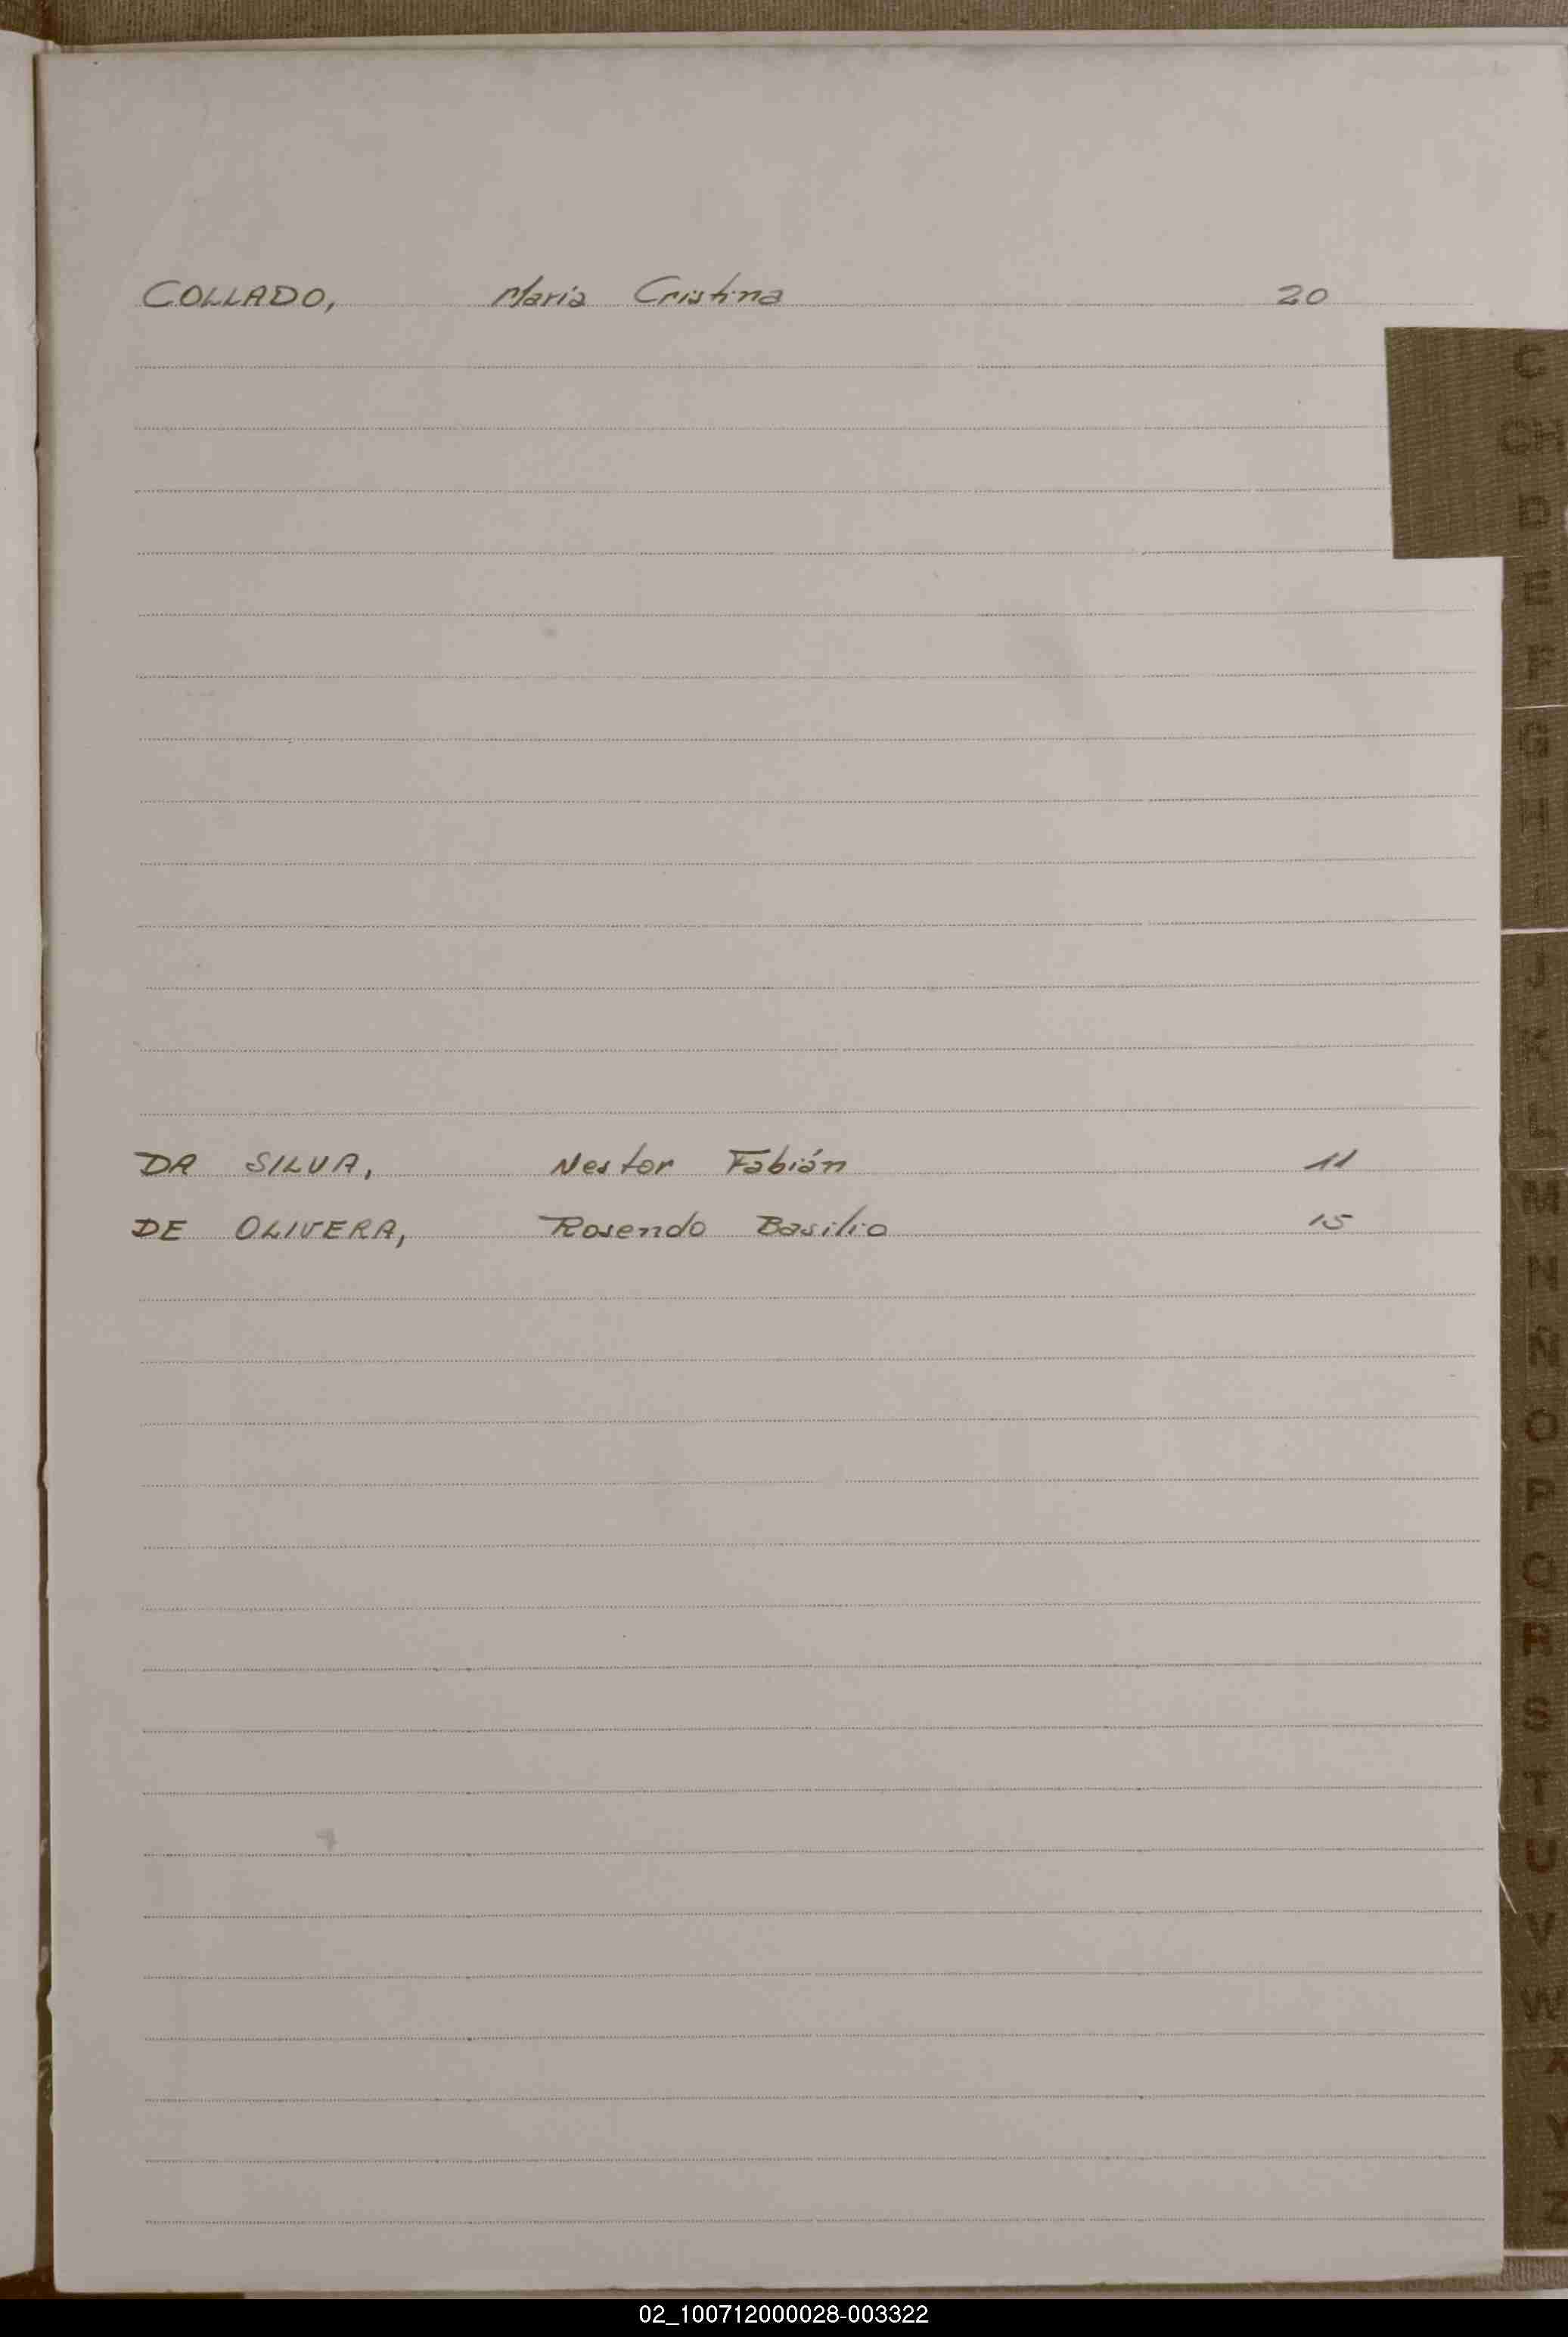 COLLADO, María Cristina 20
C
CH
D
E
F
G
H
I
J
K
L
DA SILVA, Nestor Fabián 11
M
DE OLIVERA, Rosendo Basilio 15
N
Ñ
O
P
Q
R
S
T
U
V
W
X
Y
Z
02_100712000028-003322